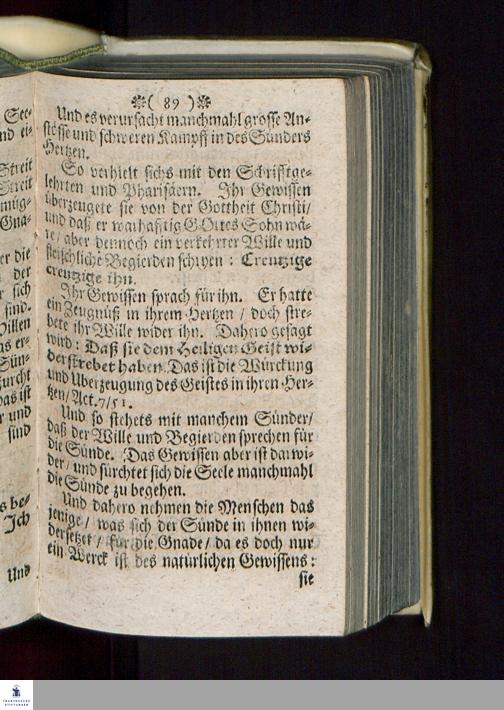 ( 89 )
Und es verursacht manchmahl grosse An-
stösse und schweren Kampff in des Sünders
Hertzen.
So verhielt sichs mit den Schrifftge-
lehrten und Pharisäern. Ihr Gewissen
überzeugete sie von der Gottheit Christi/
und daß er warhafftig GOttes Sohn wä-
re/ aber dennoch ein verkehrter Wille und
fleischliche Begierden schryen: Creutzige
creutzige ihn.
Ihr Gewissen sprach für ihn. Er hatte
ein Zeugnüß in ihrem Hertzen/ doch stre-
bete ihr Wille wider ihn. Dahero gesagt
wird: Daß sie dem Heiligen Geist wi-
derstrebet haben. Das ist die Würckung
und Uberzeugung des Geistes in ihren Her-
tzen/ Act. 7/51.
Und so stehets mit manchem Sünder/
daß der Wille und Begierden sprechen für
die Sünde. Das Gewissen aber ist darwi-
der/ und fürchtet sich die Seele manchmahl
die Sünde zu begehen.
Und dahero nehmen die Menschen das
jenige/ was sich der Sünde in ihnen wi-
dersetzet/ für die Gnade/ da es doch nur
ein Werck ist des natürlichen Gewissens:
sie
See-
nd ei-
Streit
Streit
müg-
Gna-
er die
der
r sich
sind.
Willen
as er-
Sün-
urcht
das ist
r und
sind
s be-
Ich
Und
FRANCKESCHE
STIFTUNGEN